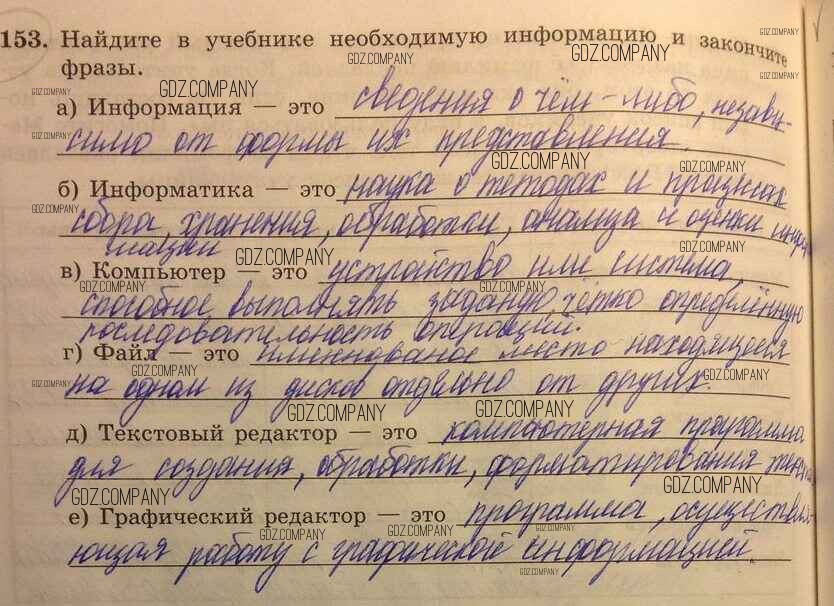 153. Найдите в учебнике необходимую информацию и закончите
фразы.
а) Информация — это сведения о чём-либо, незави-
симо от формы их представления.
б) Информатика — это наука о методах и процессах
сбора, хранения, обработки, анализа и оценки инфор
мации
в) Компьютер — это устройство или система,
способное выполнять заданную чётко определённую
последовательность операций.
г) Файл — это именнованое место находящееся
на одном из дисков отдельно от других.
д) Текстовый редактор — это компьютерная программа
для создания, обработки, форматирования
е) Графический редактор — это программа, осуществля-
ющая работу с графической информацией.
GDZ.COMPANY